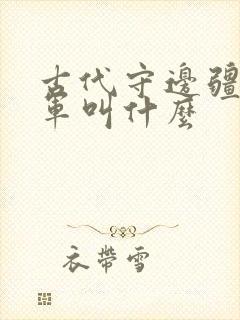 古代守邊疆
軍叫什麼
衣帶雪